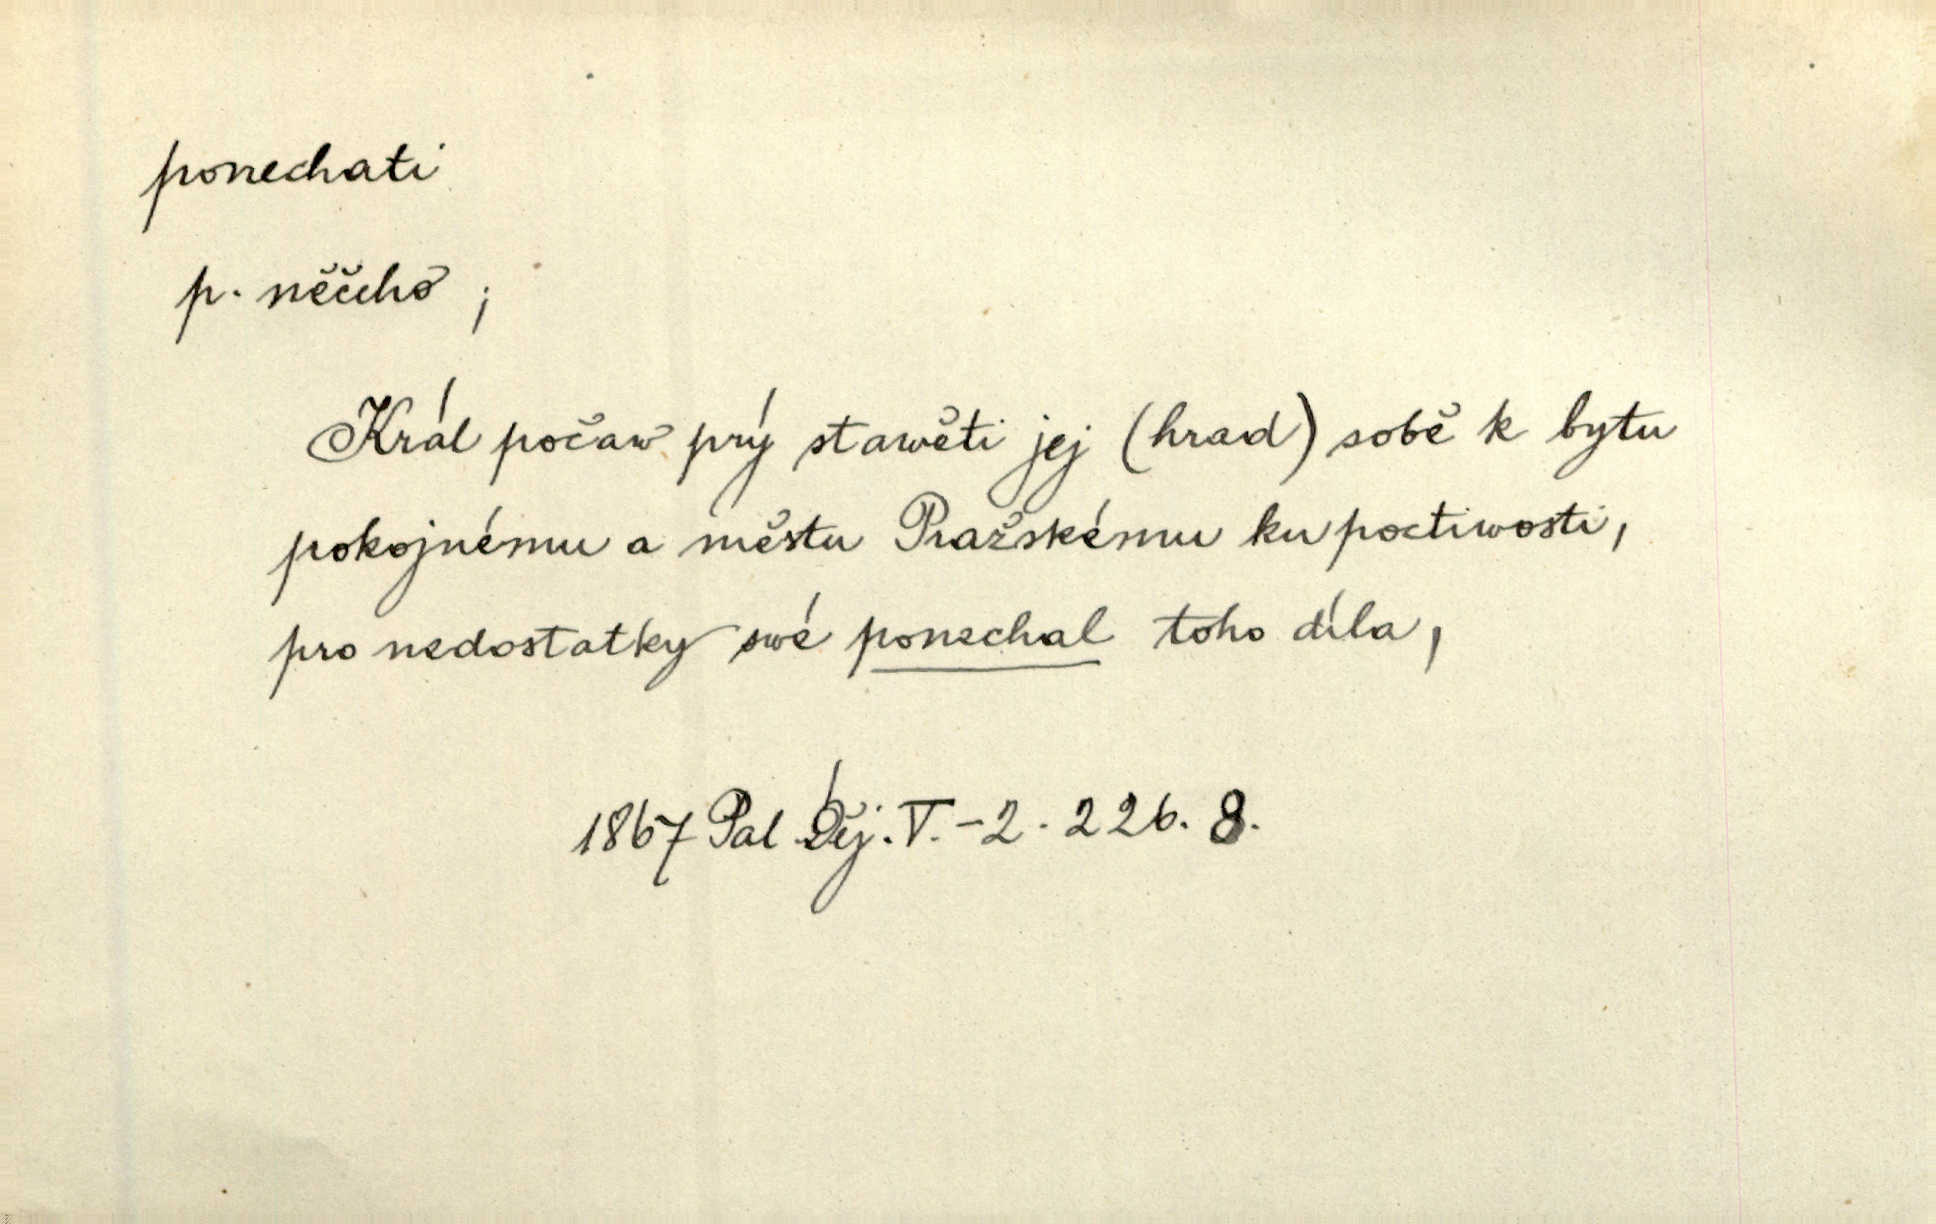 ponechati
p. něčeho ;
Král počaw prý stawěti jej (hrad) sobě k bytu
pokojnému a městu Pražskému ku poctiwosti,
pro nedostatky swé ponechal toho díla,
1867 Pal Děj. V. - 2. 226. 8.